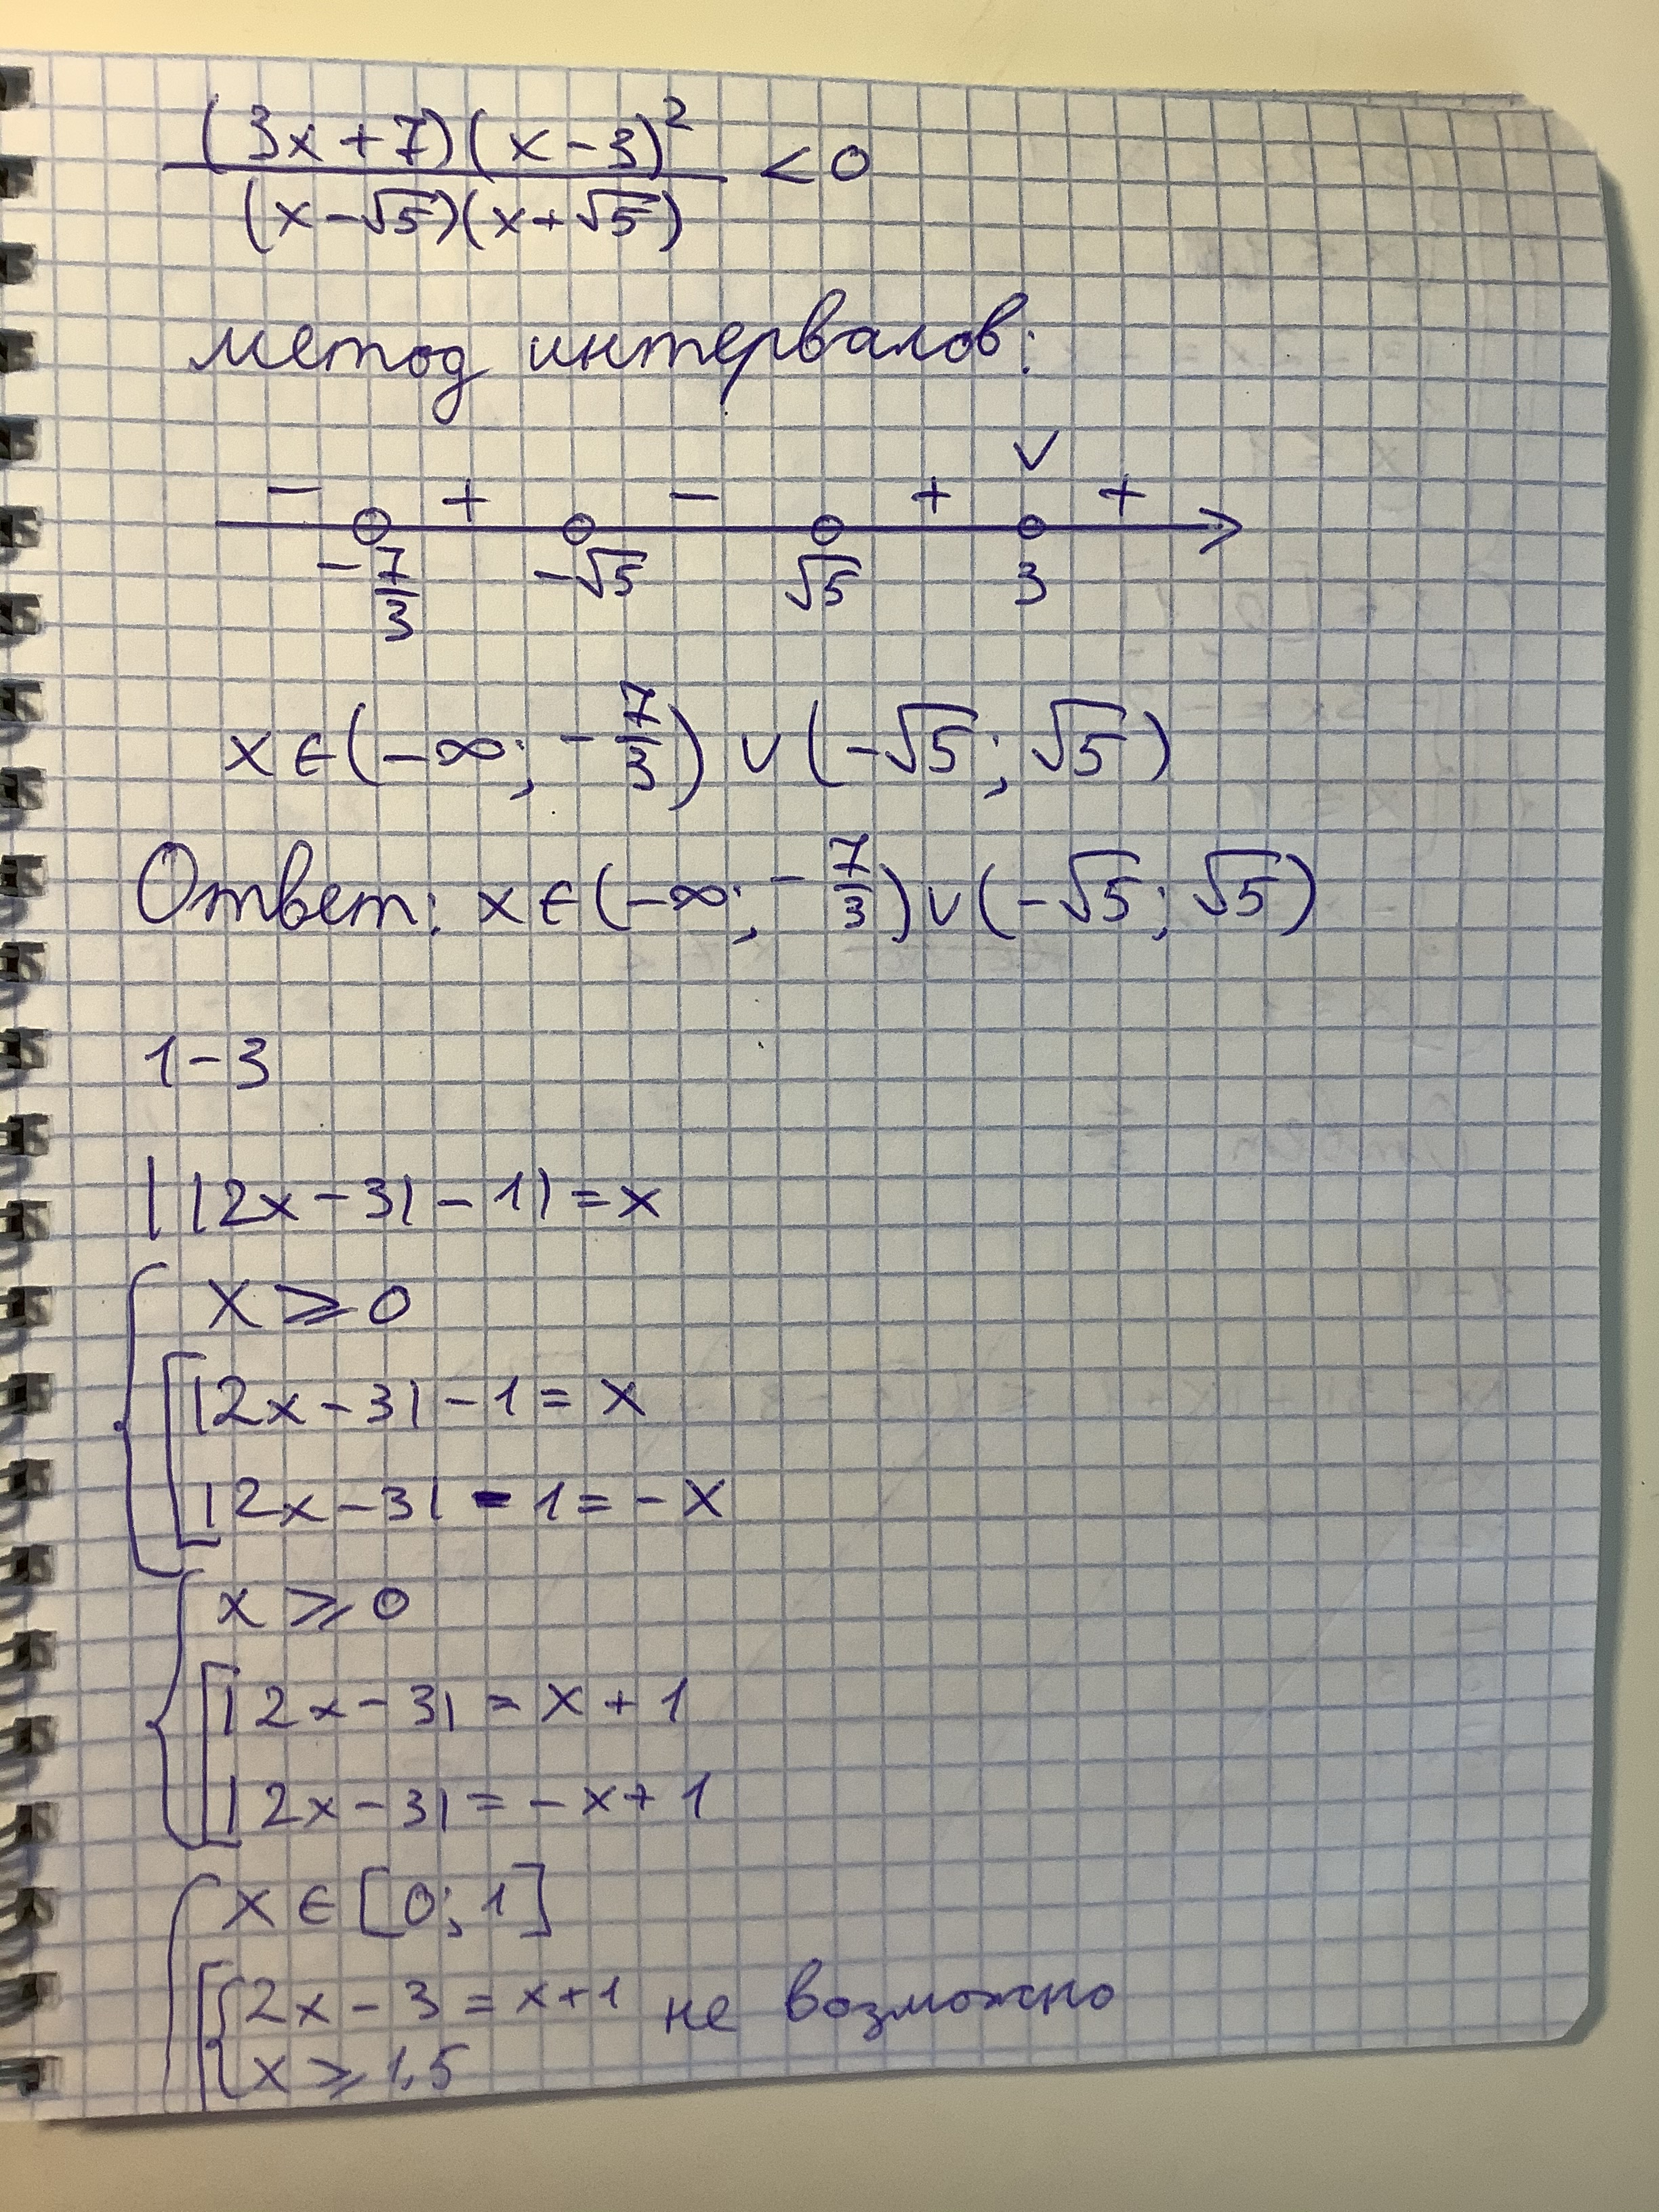 (3x+7)(x-3)²
(x-√5)(x+√5) < 0
метод интервалов:
- + - + ∨ +
-7/3 -√5 √5 3
x∈(-∞; -7/3) ∪ (-√5; √5)
Ответ: x∈(-∞; -7/3) ∪ (-√5; √5)
1-3
||2x-3|-1|=x
x ⩾ 0
|2x-3|-1=x
|2x-3|-1=-x
x ⩾ 0
|2x-3|=x+1
|2x-3|=-x+1
x∈[0;1]
2x-3=x+1 не возможно
x ⩾ 1,5